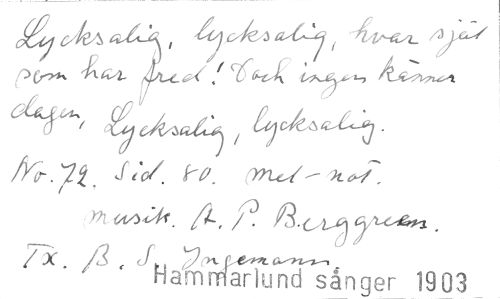 Lycksalig, lycksalig, hvar själ
som har fred! Doch ingen känner
dagen, Lycksalig, lycksalig.
No. 72. Sid. 80. mel-not.
musik. A. P. Berggreen.
Tx. B. S. Ingemann.
Hammarlund sånger 1903